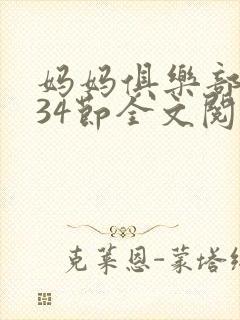 妈妈俱樂部
34節全文閱
克萊恩-蒙塔